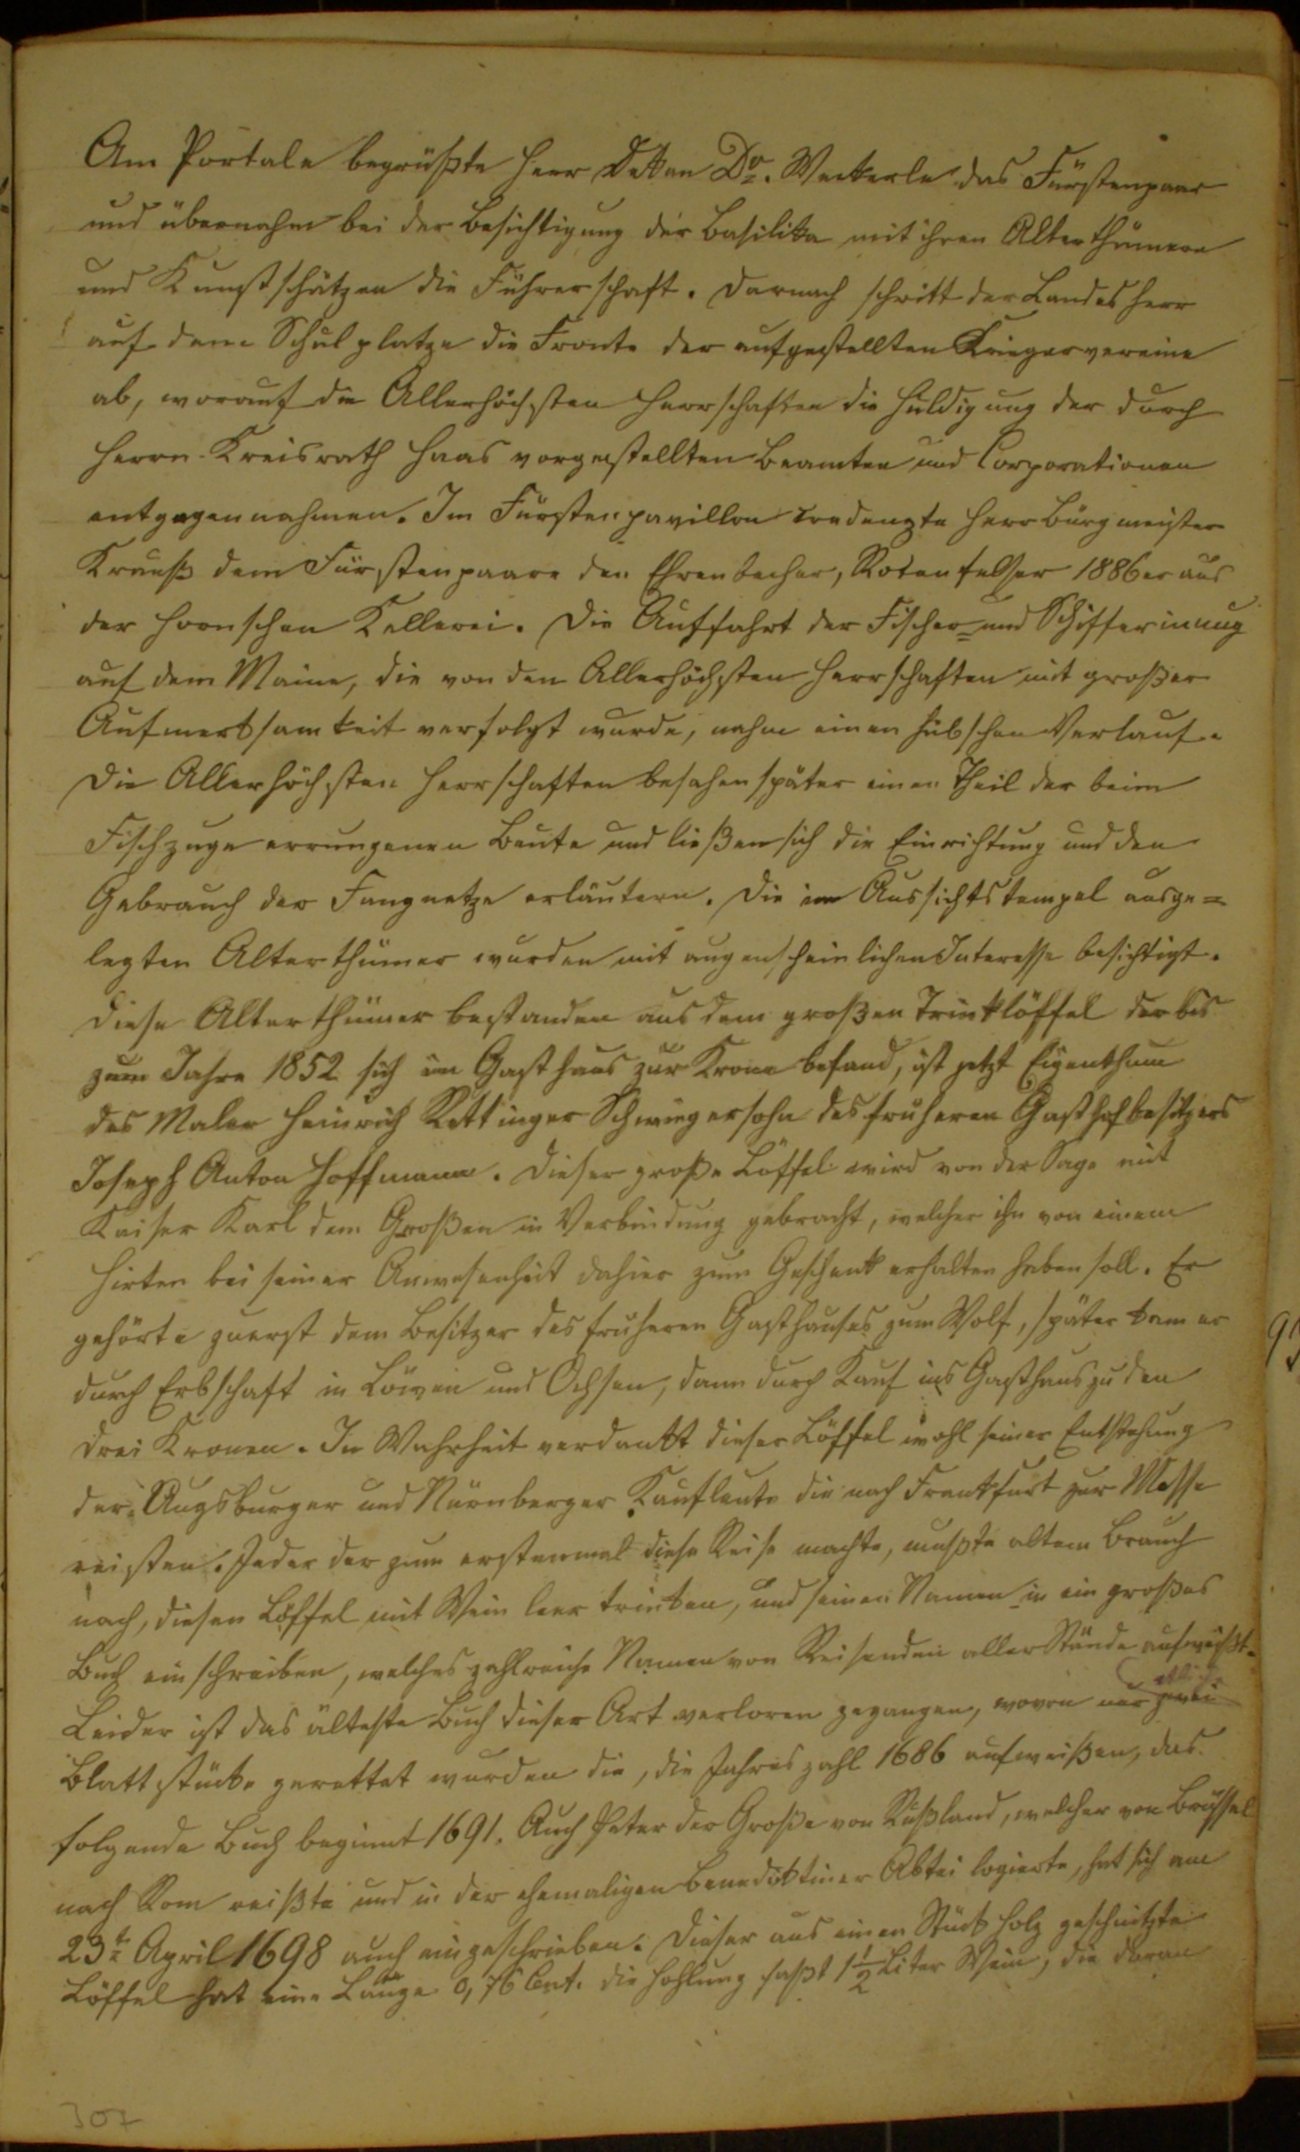 Am Portale begrüßte Herr Dekan Dr. Weckerle das Fürstenpaar
und übernahm bei der Besichtigung der Basilika mit ihren Alterthümern
und Kunstschätzen die Führerschaft. Darnach schritt der Landesherr
auf dem Schulplatze die Fronte der aufgestellten Kriegervereine
ab, worauf die Allerhöchsten Herrschaften die Huldigung der durch
Herrn Kreisrath Haas vorgestellten Beamten und Corporationen
entgegennahmen. Im Fürstenpavillon credenzte Herr Bürgmeister
Krauß dem Fürstenpaare den Ehrenbecher, Rotenfelser 1886er aus
der Hornschen Kellerei. Die Auffahrt der Fischer- und Schifferinnung
auf dem Maine, die von den Allerhöchsten Herrschaften mit großer
Aufmerksamkeit verfolgt wurde, nahm einen hübschen Verlauf.
Die Allerhöchsten Herrschaften besahen später einen Theil der beim
Fischzuge errungenen Beute und ließen sich die Einrichtung und den
Gebrauch der Fangnetze erläutern. Die im Aussichtstempel ausge=
legten Alterthümer wurden mit augenscheinlichen Interesse besichtigt.
Diese Alterthümer bestanden aus dem großen Trinklöffel der bis
zum Jahre 1852 sich im Gasthaus zur Krone befand, ist jetzt Eigenthum
des Maler Heinrich Rettinger Schwiegersohn des früheren Gasthofbesitzers
Joseph Anton Hoffmann. Dieser große Löffel wird von der Sage mit
Kaiser Karl dem Großen in Verbindung gebracht, welcher ihn von einem
Hirten bei seiner Anwesenheit dahier zum Geschenk erhalten haben soll. Er
gehörte zuerst dem Besitzer des früheren Gasthauses zum Wolf, später kam er
durch Erbschaft in Löwen und Ochsen, dann durch Kauf ins Gasthaus zu den
drei Kronen. In Wahrheit verdankt dieser Löffel wohl seiner Entstehung
der Augsburger und Nürnberger Kaufleute die nach Frankfurt zur Messe
reisten. Jeder der zum erstenmal diese Reise machte, mußte altem Brauch
nach, diesen Löffel mit Wein leer trinken, und seinen Namen in ein großes
Buch einschreiben, welches zahlreiche Namen von Reisenden aller Stände aufweißt.
Leider ist das älteste Buch dieser Art verloren gegangen, wovon nur zwei etliche
Blattstücke gerettet wurden die, die Jahreszahl 1686 aufweißen, das
folgende Buch beginnt 1691. Auch Peter der Große von Rußland, welcher von Brüssel
nach Rom reißte und in der ehemaligen Benediktiner Abtei logierte, hat sich am
23te April 1698 auch eingeschrieben. Dieser aus einen Stück Holz geschnitzte
Löffel hat eine Länge 0,76 Cent. die Hohlung faßt 1 1/2 Liter Wein, die daran
307